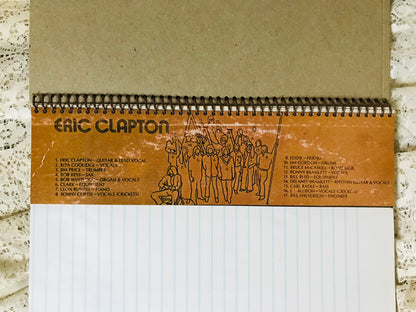 ERIC CLAPTON
1. ERIC CLAPTON - GUITAR & LEAD VOCAL
2. RITA COOLIDGE - VOCALS
3. JIM PRICE - TRUMPET
4. BOB KEYS - SAX
5. BOB WHITLOCK - ORGAN & VOCALS
6. CLARK - EQUIPMENT
7. LEON RUSSELL - PIANO
8. SONNY CURTIS - VOCALS (CRICKETS)
9. EDDIE - FRIEND
10. JIM GORDON - DRUMS
11. BRUCE McCASKILL - ROAD MGR.
12. BONNY BRAMLETT - VOCALS
13. BILL REED - EQUIPMENT
14. DELANEY BRAMLETT - RHYTHM GUITAR & VOCALS
15. CARL RADLE - BASS
16. ALLISON - VOCALS
17. BILL HALVERSON - ENGINEER